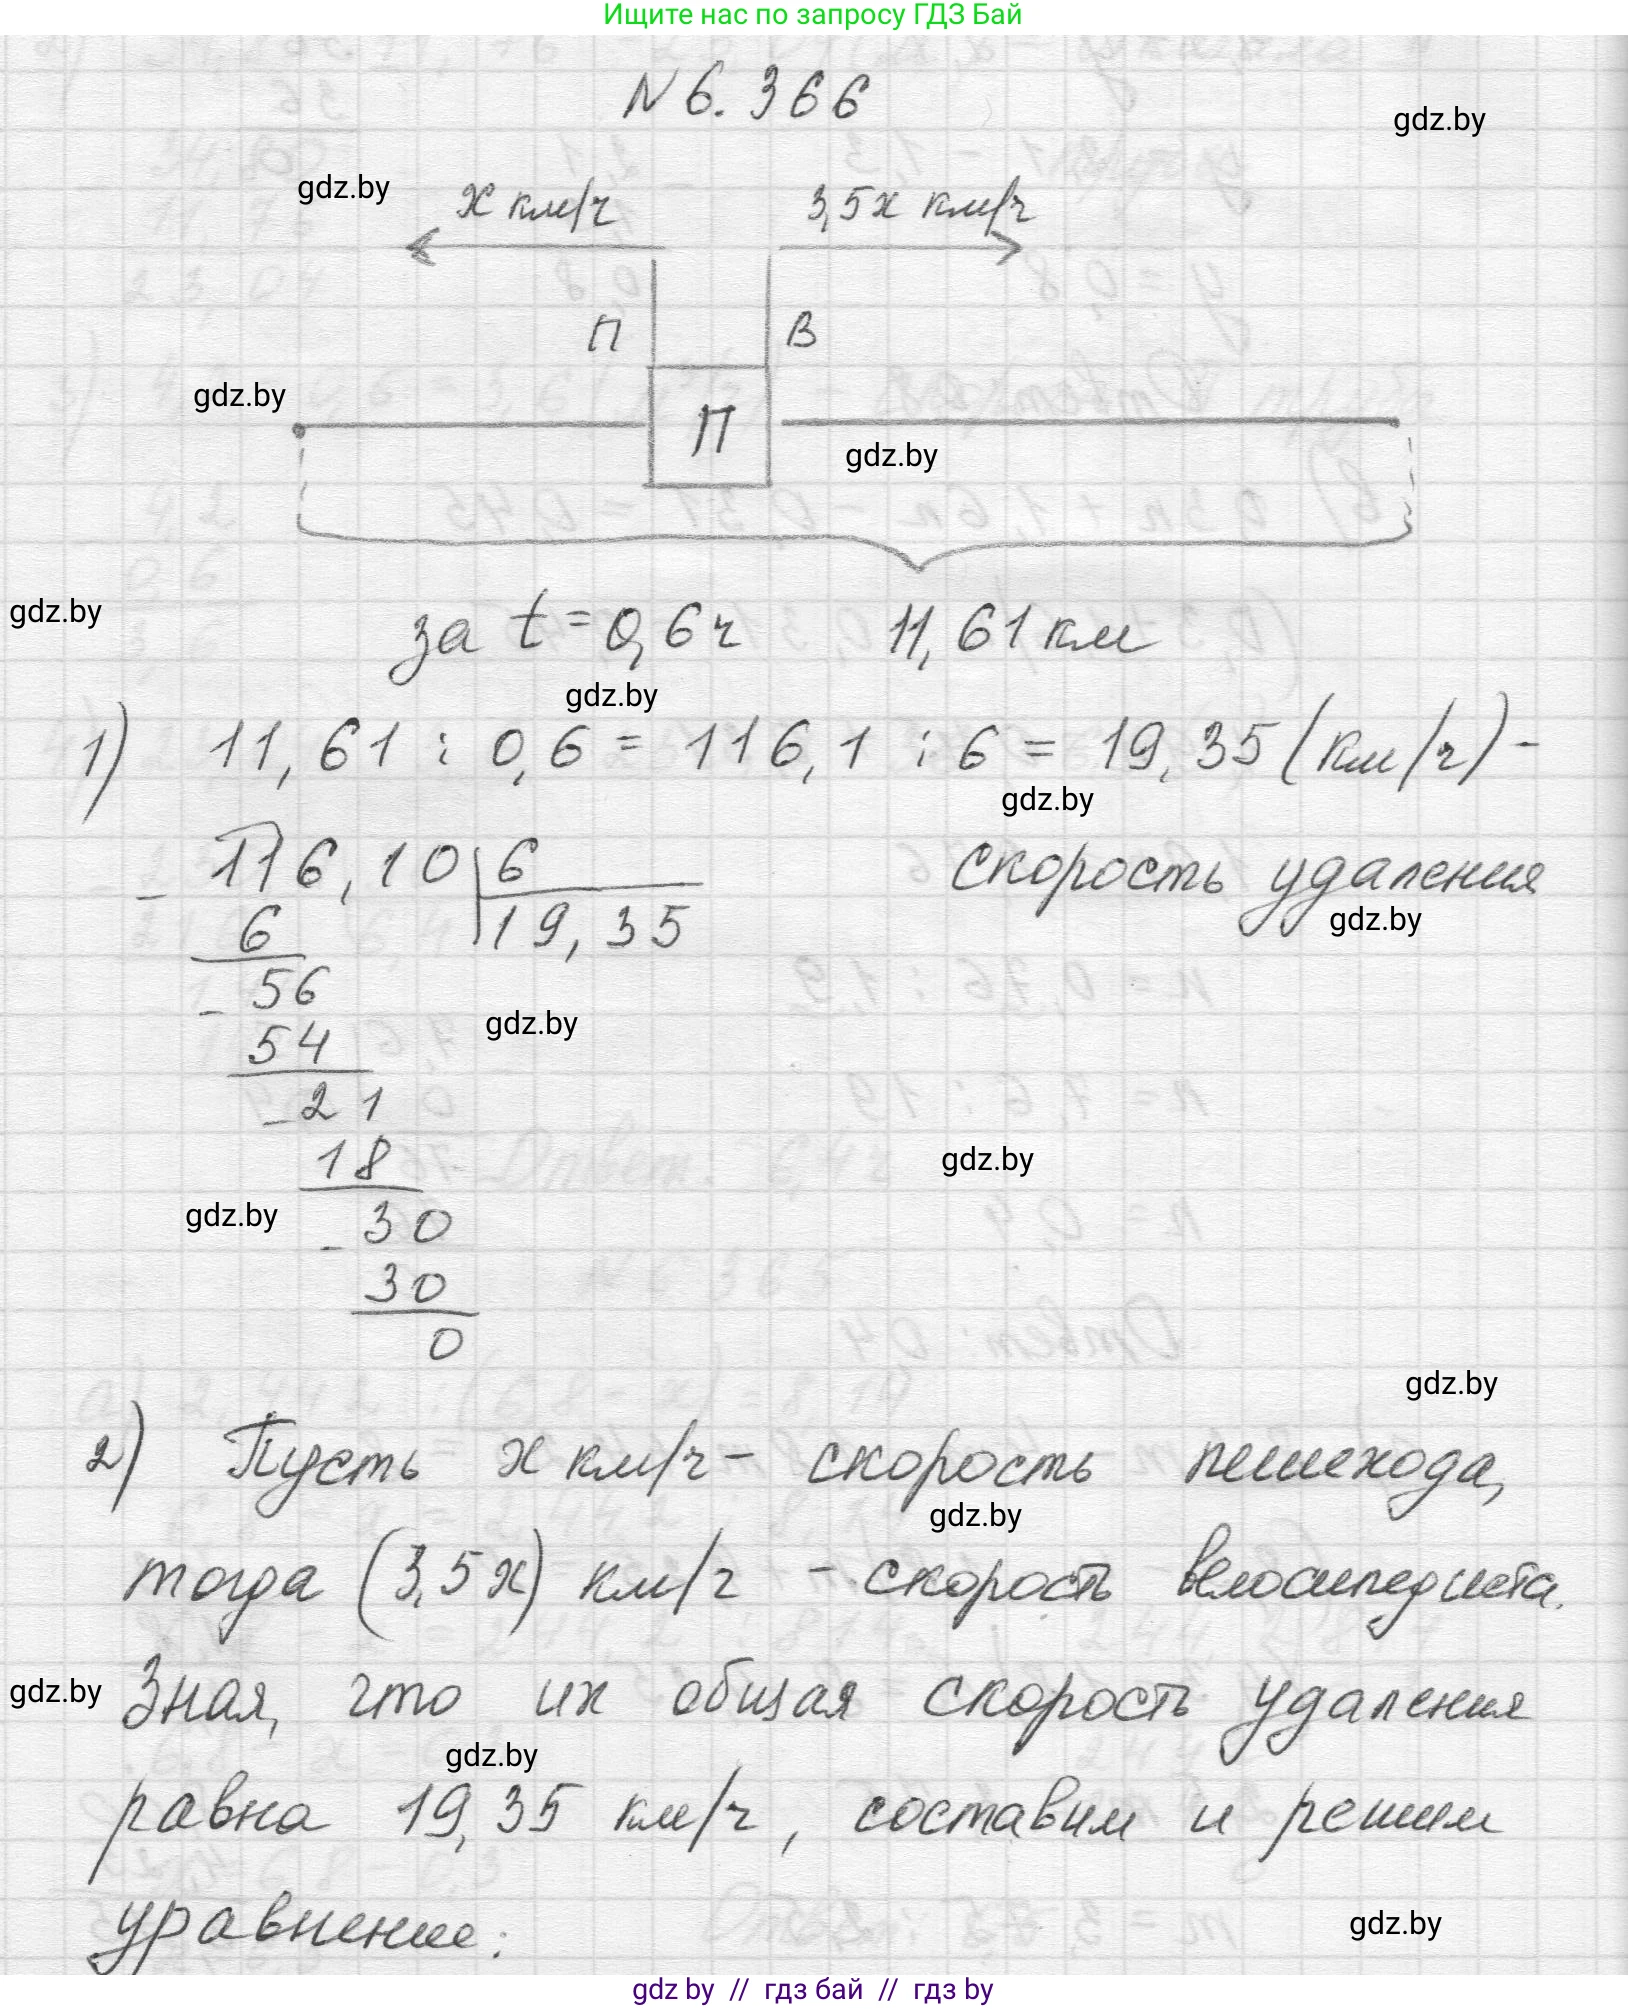 Ищите нас по запросу ГДЗ Бай
N 6.366
gdz.by
gdz.by
х км/ч
3,5х км/ч
П
В
gdz.by
П
gdz.by
gdz.by
за t = 0,6ч
11,61 км
gdz.by
1) 11,61 : 0,6 = 116,1 : 6 = 19,35 (км/ч) -
gdz.by
скорость удаления
gdz.by
116,10 6
- 6 19,35
56
gdz.by
- 54
21
- 18
gdz.by
gdz.by
30
- 30
0
gdz.by
2) Пусть х км/ч - скорость пешехода,
gdz.by
тогда (3,5х) км/ч - скорость велосипедиста.
gdz.by
Зная, что их общая скорость удаления
gdz.by
равна 19,35 км/ч, составим и решим
уравнение:
gdz.by
gdz by // гдз бай // гдз by